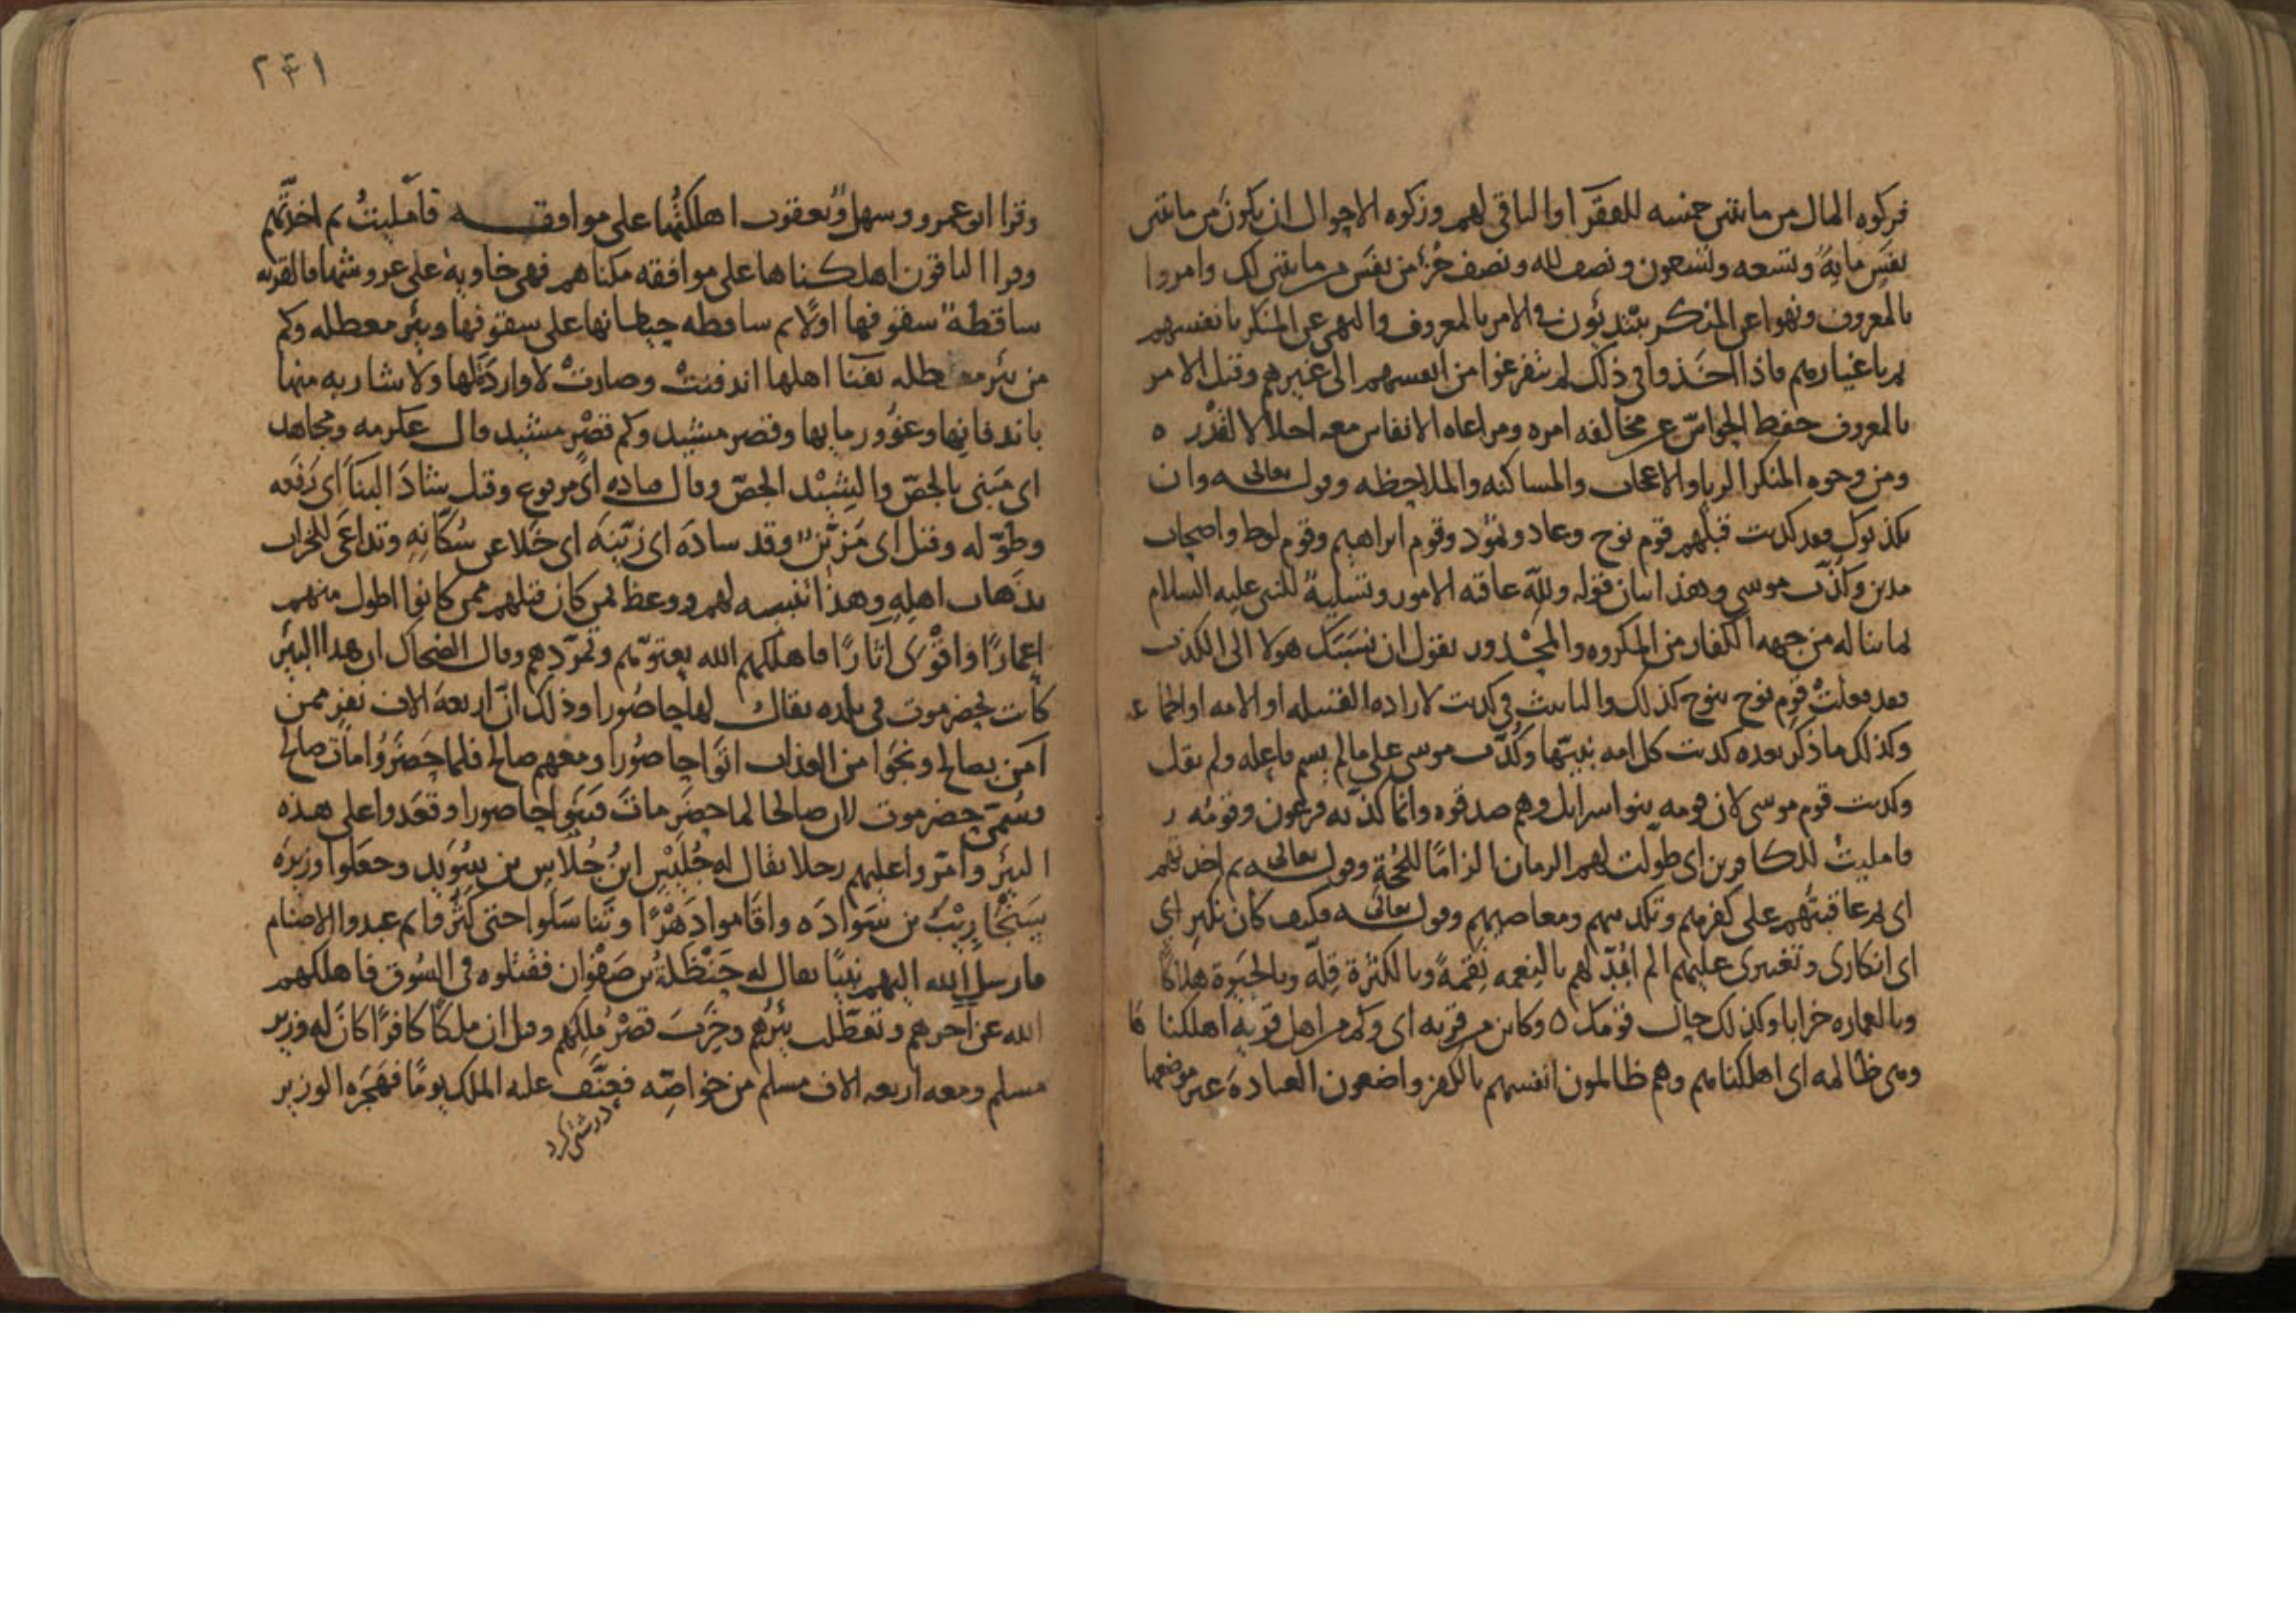 فزكوه المال من مايتى خمسه للفقرآ والباقى لهم وزكوه الاحوال ان يكون من مايتى
نفَسٍ مايهٌ وتسعه وتسعون ونصف لله ونصف جُزءٍ من نفَسٍ من مايتى لك وامروا
بالمعروف ونهوا عن المنكر يبتدئون فى الامر بالمعروف والنهى عن المنكر بانفسهم
ثم باغيارهم فاذا اخذوا فى ذلك لم يتفرغوا من انفسهم الى غيرهم وقيل الامر
بالمعروف حفظ الحواسّ عن مخالفه امره ومراعاه الانفاس معه اجلالا لقدْره
ومن وجوه المنكر الريا والاعجاب والمساكنه والملاحظه وقوله تعالى وان
يكذبوك فقد كذبت قبلهم قوم نوح وعاد وثمود وقوم ابراهيم وقوم لوط واصحاب
مدين وكُذّب موسى وهذا بيان قوله ولله عاقبه الامور وتسليةٌ للنبى عليه السلام
بما يناله من جهه الكفار من المكروه والمحْذور يقول ان نسبَك هولا الى الكذب
فقد فعلتْ قوم نوح بنوح كذلك والتانيث فى كذبت لاراده القبيله او الامه او الجماعه
وكذلك ما ذكر بعده كذبت كل امه نبيّها وكُذّب موسى على ما لم يسم فاعله ولم يقل
وكذبت قوم موسى لان قومه بنوا اسرايل وهم صدقوه وانما كذّبه فرعون وقومُه
فامليتُ للكافرين اى طولت لهم الزمان الزامًا للحُجةِ وقوله تعالى ثم اخذتهم
اى ثم عاقبتُهم على كفرهم وتكذيبهم ومعاصيهم وقوله تعالى فكيف كان نكير اى
اى انكارى وتغييرى عليهم الم اُبَدّل لهم بالنعمه نِقمةً وبالكثرة قِلّه وبالحيَوة هلاكًا
وبالعماره خرابا وكذلك حال قومك ه وكاين من قريه اى وكم من اهل قريه اهلكناها
وهى ظالمه اى اهلكناهم وهم ظالمون انفسهم بالكفر واضعون العبادةَ غير موضعها
٢٣١
وقرا ابو عمرو وسهل ويعقوب اهلكتُها على موافقه فامليتُ ثم اخذتُهم
وقرا الباقون اهلكناها على موافقه مكناهم فهى خاويهٌ على عروشها فالقريه
ساقطة سقوفها اولًا ثم ساقطه حيطانها على سقوفها وبئرٍ معطله وكم
من بئر معطله بفنآ اهلها اندفنتْ وصارتْ لا وارد لها ولا شاربه منها
باندفانها وعؤور مايها وقصر مشيد وكم قصْرٍ مشيد قال عكرمه ومجاهد
اى مَبنى بالجصّ والشِيْد الجصّ وقال قتاده اى مرفوع وقيل شادَ البنآ اى رَفَعه
وطوّله وقيل اى مزيّن وقد شادَه اى زيّنه اى خَلا عن سُكّانِهِ وتداعَى للخراب
بذهاب اهلِهِ وهذا تنبيه لهم ووعظ بمن كان قبلهم ممن كانوا اطول منهم
اعمارًا واقْوى اثارًا فاهلكهم الله بعتوّهم وتمرّدهم وقال الضحاك ان هذا البئر
كانت بحضرموت فى بلده يقال لها حاصُورا وذلك انّ اربعة الاف نفرٍ ممن
آمن بصالح ونجَوا من العذاب اتَوا حاصُورا ومعهم صالح فلما حَضَرُوا مات صالح
فسُمّى حضرموت لان صالحا لما حضَر ماتَ فبَنَوا حاصورا وقعَدوا على هذه
البئر وامّروا عليهم رجلا يقال له جُلَيْسِ ابنُ جُلاسِ بن سُوَيد وجعلوا وزيرَه
سِنْجَارِيْبَ بن سَوادَه واقاموا دَهْرًا وتناسَلوا حتى كثُروا ثم عبدوا الاصنام
فارسل الله اليهم نبيًا يقال له حَنْظلةُ بن صَفْوان فقتلوه فى السُوق فاهلكهم
الله عن آخرهم وتعطّلت بئرُهم وخَرِبَ قصْرُ مَلِكهم وقيل ان ملكًا كافرًا كان له وزير
مسلم ومعه اربعه الاف مسلم من خواصّه فعنَّف عليه الملك يومًا فهَجَره الوزير
درشتى كرد